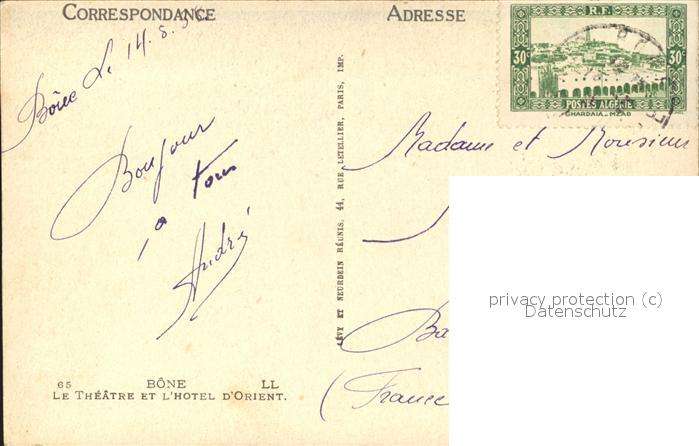 CORRESPONDANCE
ADRESSE
R.F.
30c 30c
POSTES ALGÉRIE
GHARDAIA _ MZAB
Bône le 14.8.
Bonjour
à tous
André
LÉVY ET NEURDEIN RÉUNIS, 44, RUE LETELLIER, PARIS, IMP.
Madame et Monsieur
Ba
(France
privacy protection (c)
Datenschutz
65 BÔNE LL
LE THÉÂTRE ET L'HOTEL D'ORIENT.